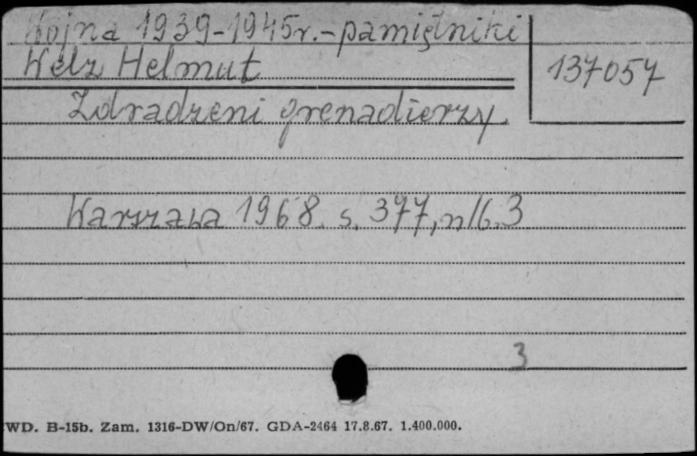 Wojna 1939-1945r.-pamiętniki
Welz Helmut
137057
Zdradzeni grenadierzy.
Warszawa 1968. s. 377, nlb. 3
3
WD. B-15b. Zam. 1316-DW/On/67. GDA-2464 17.8.67. 1.400.000.